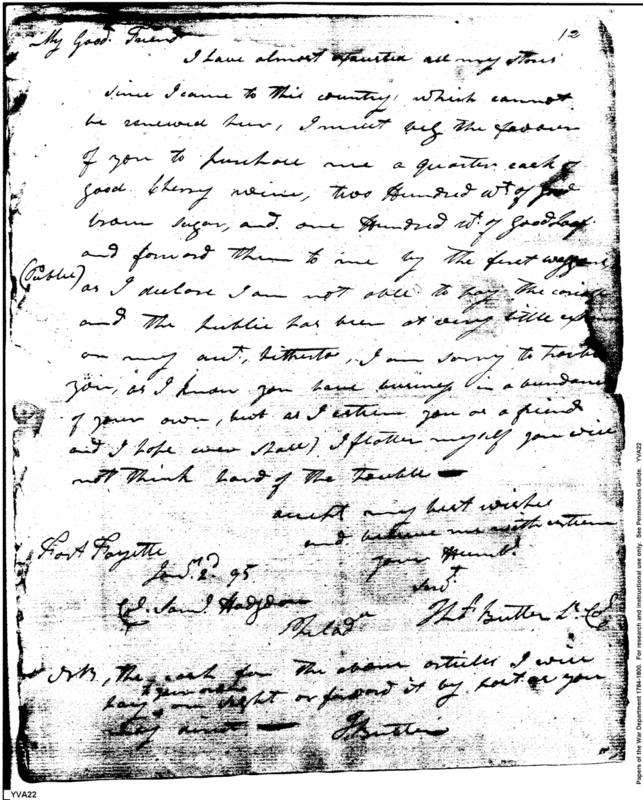 12
My Good Friend
I have almost exausted all my stores
since I came to this country, which cannot
be renewed here, I must beg the favour
of you to purchase me a quarter cask of
good Sherry wine, two Hundred wt. of good
brown sugar, and one Hundred wt. of Good Loaf
and forward them to me by the first waggons
(Public)
as I declare I am not able to pay the
and the public has been at very little
on my acct, hitherto, I am sorry to trouble
you, as I know you have business in abundance
of your own, but as I esteem you as a friend
and I hope ever shall) I flatter myself you will
not think hard of the trouble —
accept my best wishes
and believe me with esteem
your Humbl.
Servt
Fort Fayette
Jany. 2d. 95
Thos. Butler Lt. Col
Col. Saml. Hodgdon
Philada
NB, the cash for the above articles I will
pay to your order on sight or forward it by post as you
may direct — TButler
YVA22
Papers of the War Department 1784-1800. For research and instructional use only. See Permissions Guide. YVA22